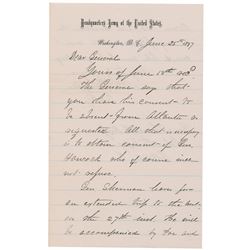 Headquarters Army of the United States,
Washington, D. C. June 25th 1877
Dear General
Yours of June 18th rec'd
The General says that
you have his consent to
be absent from Atlanta as
requested. All that is necessary
is to obtain consent of Gen
Hancock who of course will
not refuse.
Gen Sherman leaves for
an extended trip to the West
on the 27th inst. He will
be accompanied by Poe and